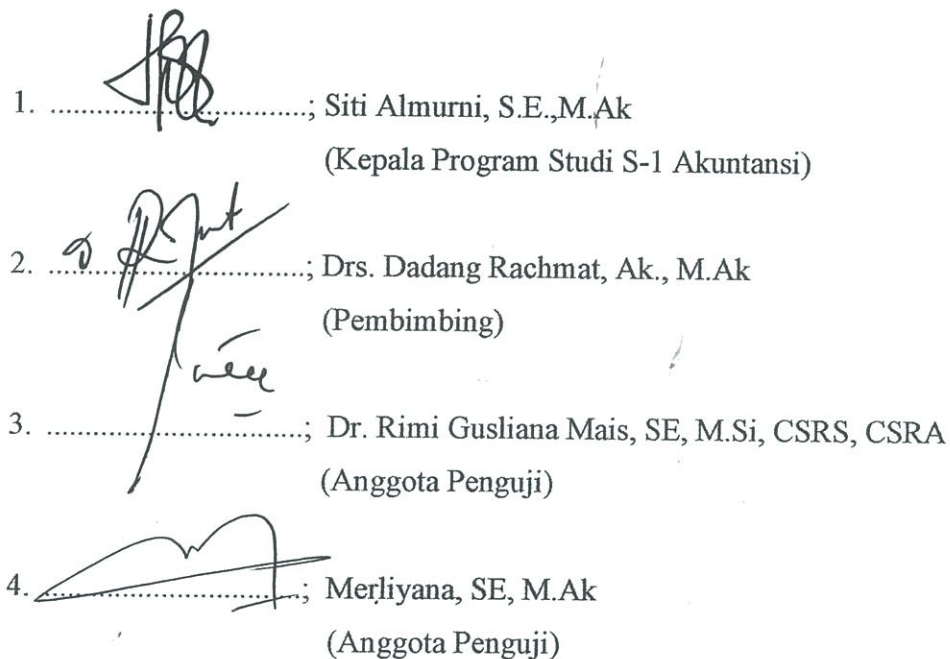 1. ..................................; Siti Almurni, S.E.,M.Ak
(Kepala Program Studi S-1 Akuntansi)
2. ..................................; Drs. Dadang Rachmat, Ak., M.Ak
(Pembimbing)
3. ..................................; Dr. Rimi Gusliana Mais, SE, M.Si, CSRS, CSRA
(Anggota Penguji)
4. ..................................; Merliyana, SE, M.Ak
(Anggota Penguji)